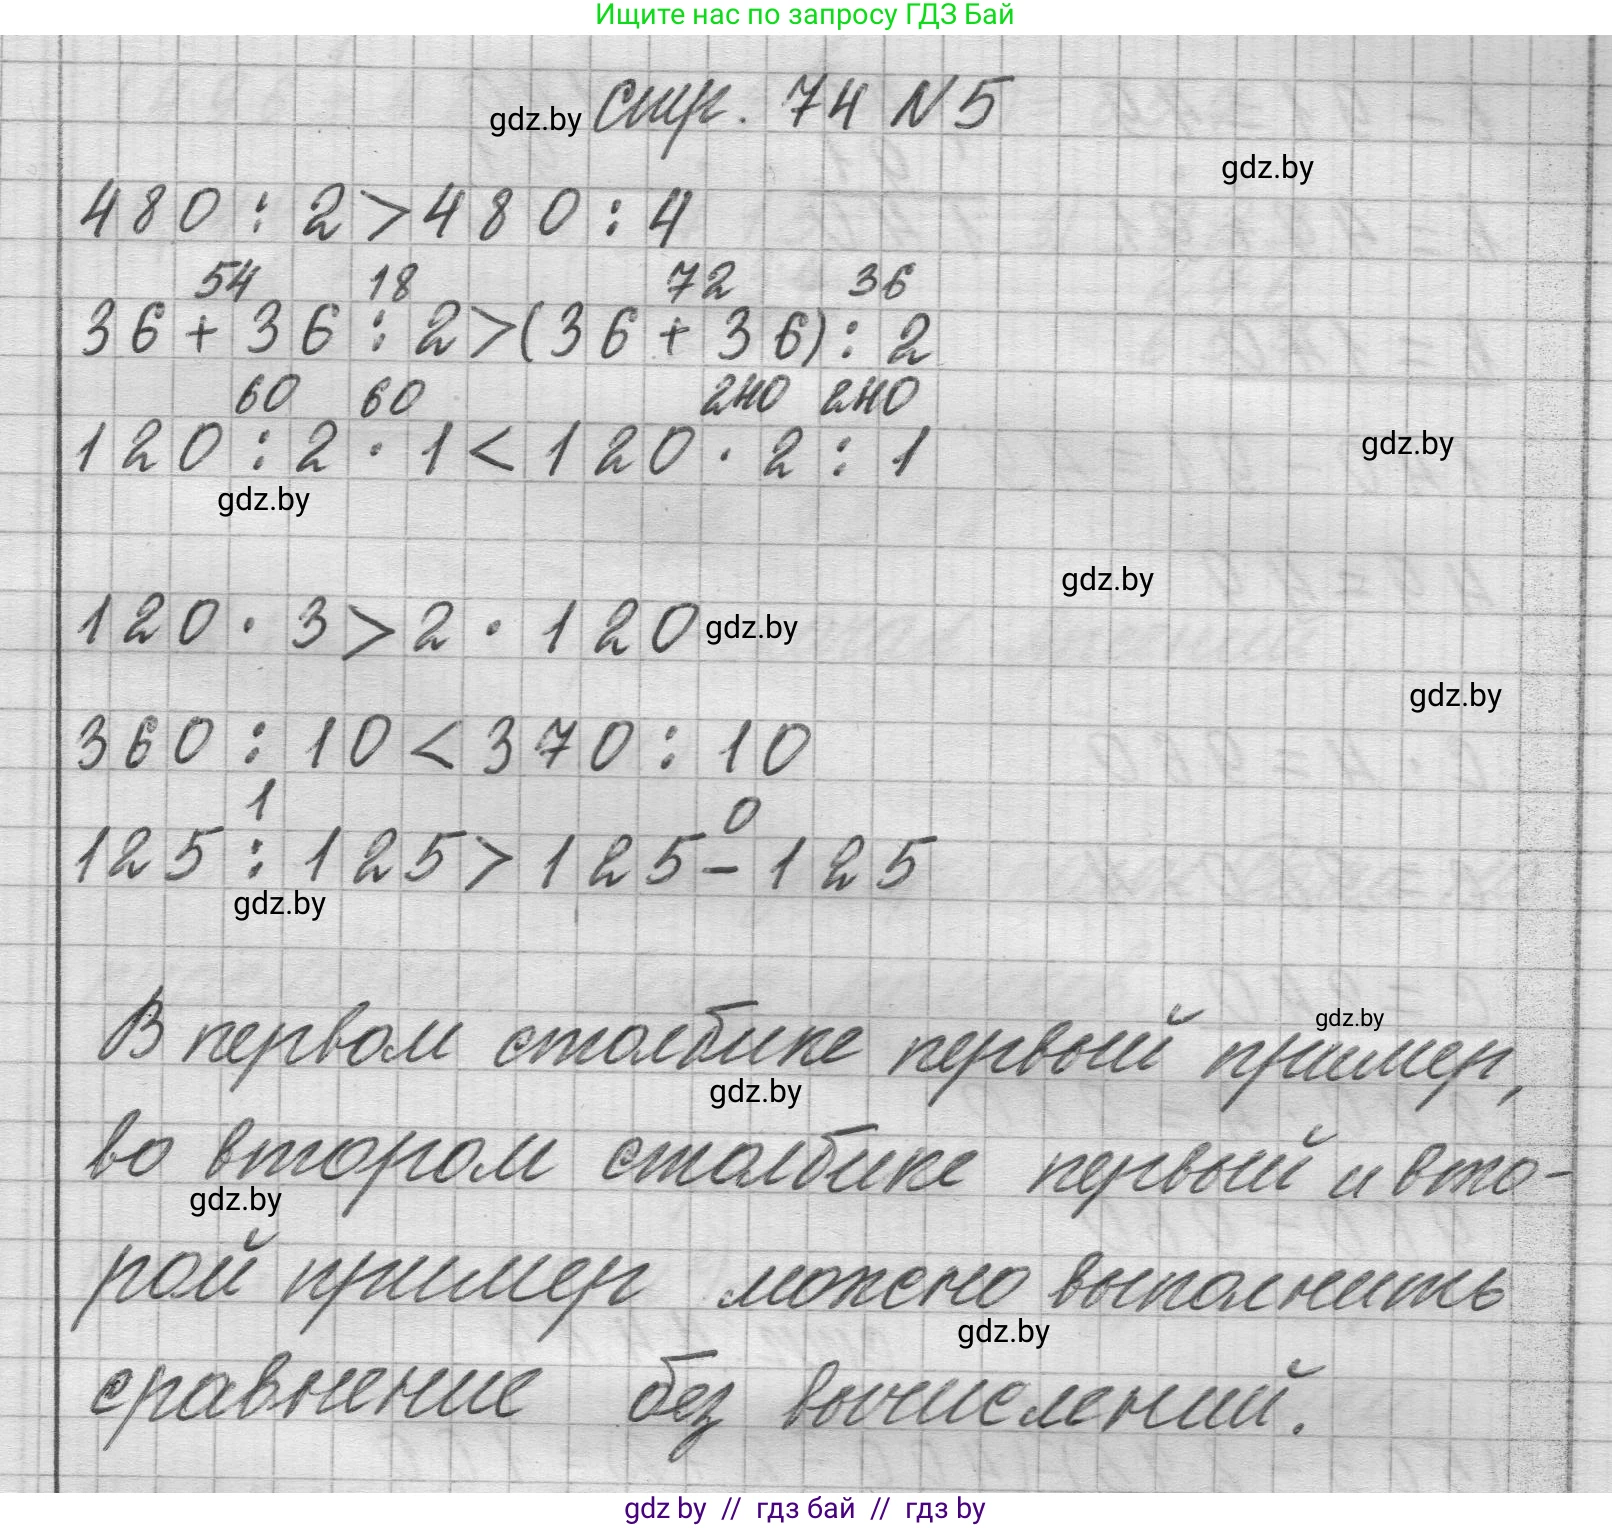 Ищите нас по запросу ГДЗ Бай
gdz.by стр. 74 N 5
gdz.by
480 : 2 > 480 : 4
54 18 72 36
36 + 36 : 2 > (36 + 36) : 2
60 60 240 240
120 : 2 · 1 < 120 · 2 : 1
gdz.by
gdz.by
gdz.by
120 · 3 > 2 · 120 gdz.by
gdz.by
360 : 10 < 370 : 10
1 0
125 : 125 > 125 - 125
gdz.by
gdz.by
В первом столбике первый пример,
gdz.by
во втором столбике первый и вто-
gdz.by
рой пример можно выполнить
gdz.by
сравнение без вычислений.
gdz by // гдз бай // гдз by